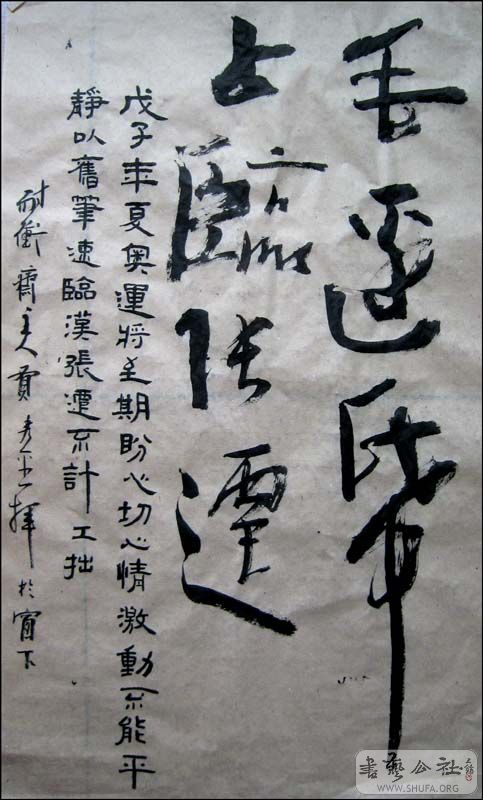 毛邊帋
上臨張遷
戊子年夏奧運將至期盼心切心情激動不能平
靜以舊筆速臨漢張遷不計工拙
耐衡齋主人賈揮於窗下
書藝公社
WWW.SHUFA.ORG